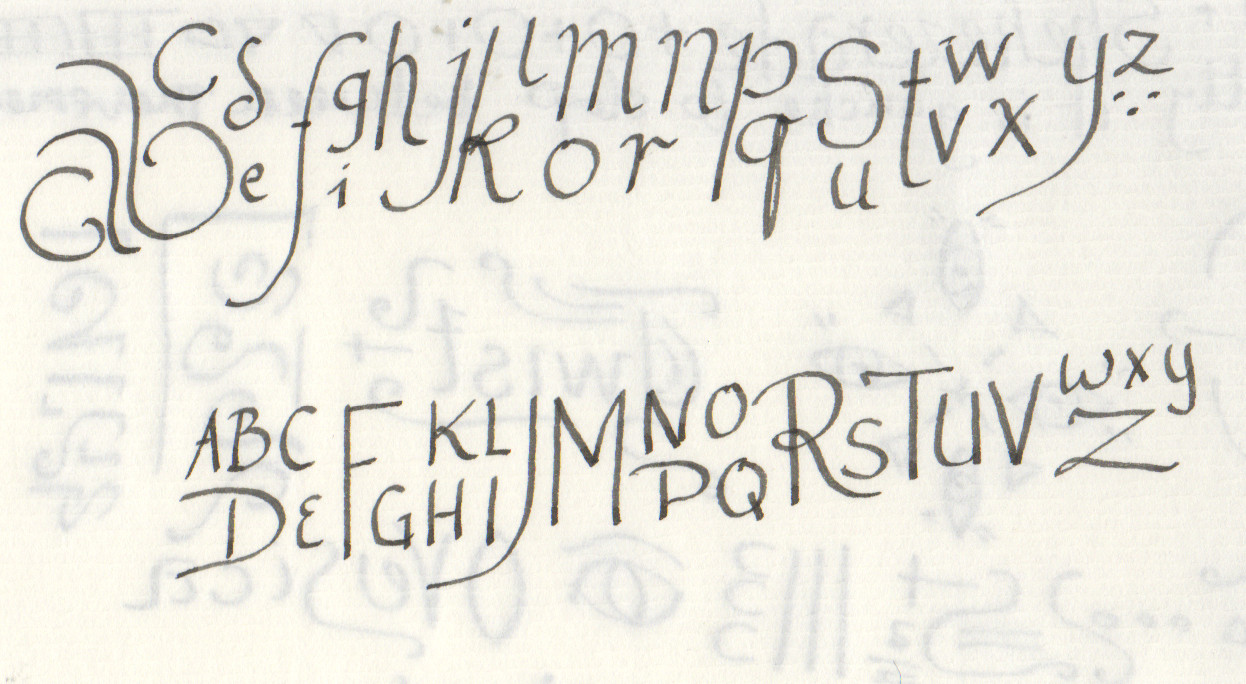 abcdefghijklmnopqrstuvwxyz
ABCDEFGHIJKLMNOPQRSTUVwxyZ